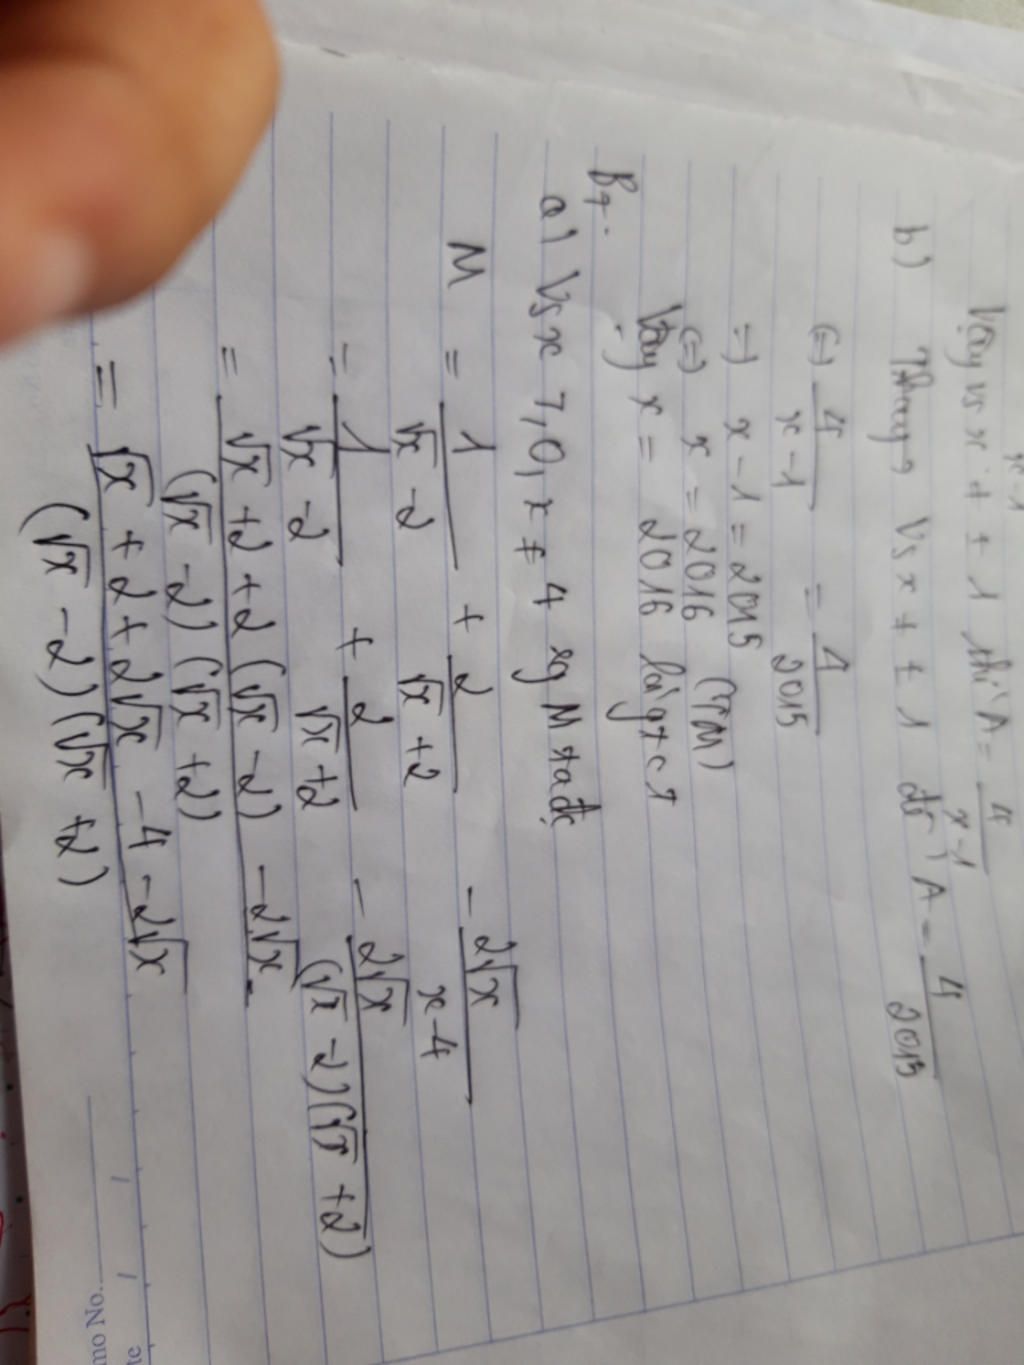 x-1
Vậy vs x ≠ ± 1 thì A = 4/(x-1)
b) Thay vs x ≠ ± 1 để A = 4/2015
(=) 4/(x-1) = 4/2015
=) x - 1 = 2015
(=) x = 2016 (TM)
Vậy x = 2016 là gt c t
B4:
a) Vs x ≥ 0, x ≠ 4 bt M
M = 1/(√x - 2) + 2/(√x + 2) - 2√x/(x-4)
= 1/(√x - 2) + 2/(√x + 2) - 2√x/((√x - 2)(√x + 2))
= (√x + 2 + 2(√x - 2) - 2√x)/((√x - 2)(√x + 2))
= (√x + 2 + 2√x - 4 - 2√x)/((√x - 2)(√x + 2))
mo No.
te / /